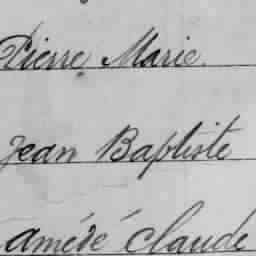 Pierre Marie
Jean Baptiste
Amédé Claude